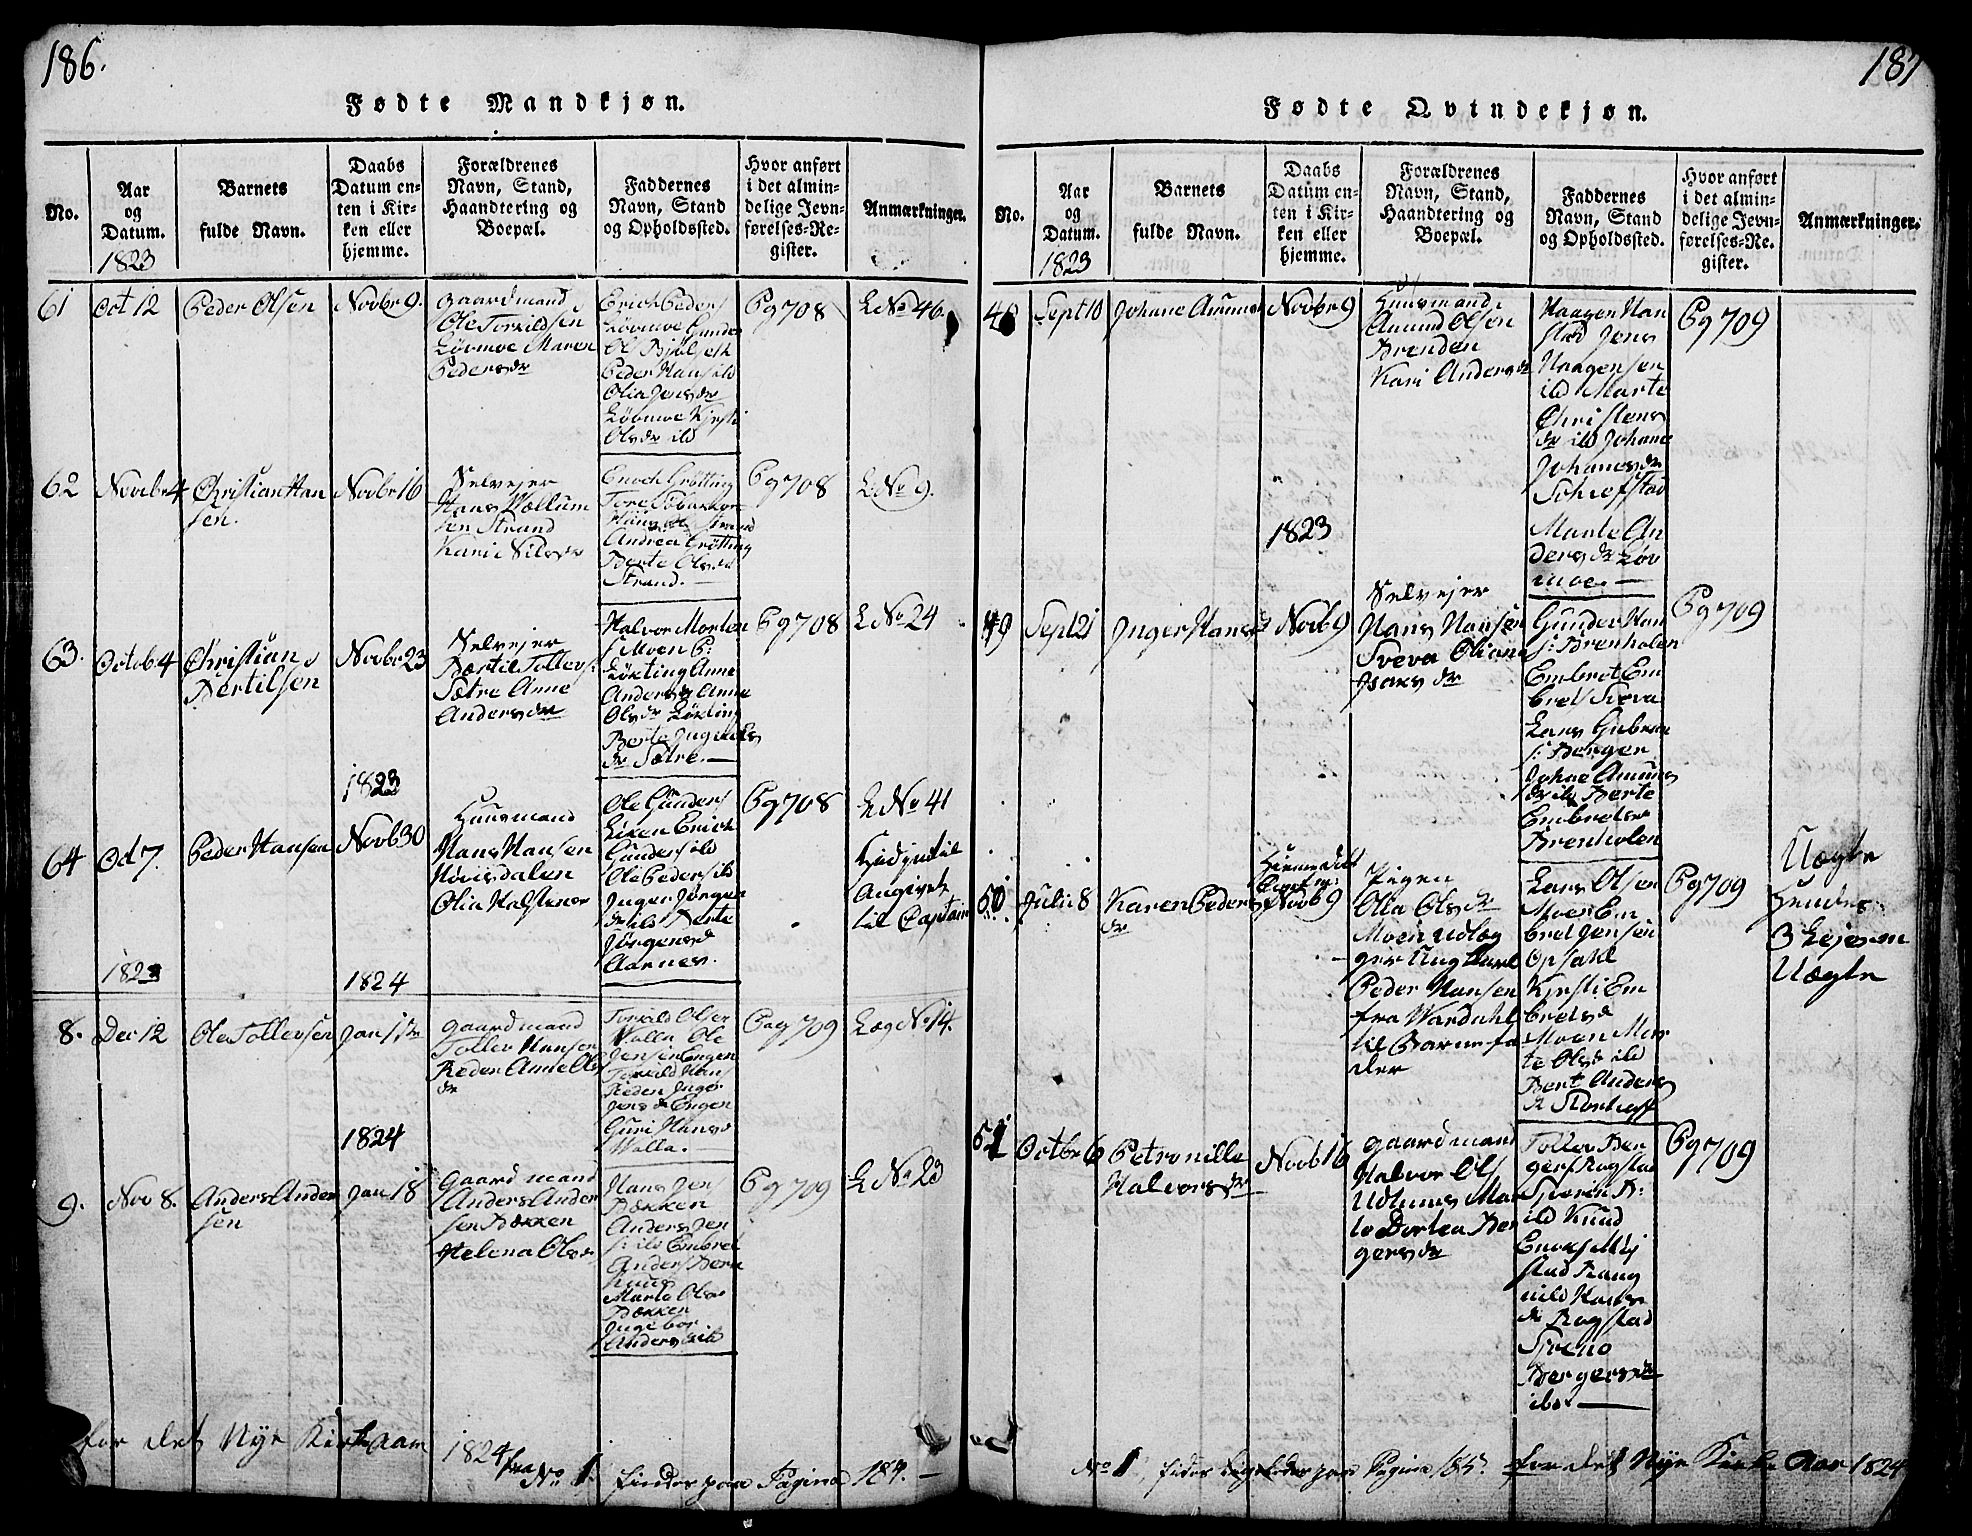 186.
Fødte Mandkjøn.
No.
Aar
og
Datum.
1823
Barnets
fulde Navn.
Daabs
Datum en-
ten i Kir-
ken eller
hjemme.
Forældrenes
Navn, Stand,
Haandtering og
Boepæl.
Faddernes
Navn, Stand
og Opholdssted.
Hvor anført
i det almin-
delige Jevn-
førelses-Re-
gister.
Anmærkninger.
61
Oct 12
Peder Olsen
Novbr 9.
Gaardmand
Ole Torkildsen
Løvmoe Maren
Pedersdr
Erich Peders
Løvmoe Gunder
Peder Hans ibd
Olia Jensdr
Løvmoe Kjersti
Olsdr ibd
Pg 708
L No 46.
62
Novbr 4
Christian Han
sen.
Novbr 16
Selvejer
Hans
sen Strand
Kari Nilsdr
Enoch Grøtting
Tore
Strand
Andrea Grøtting
Berte Olsdr
Strand.
Pg 708
L No 9.
63.
Octob 4
Christian
Bertilsen
Novbr 23
Selvejer
Bertil Tollevs:
Sætre Anne
Andersdr
Halvor Morten
s: Moen P:
Løkting Anne
Andersdr Anne
Olsdr Løkting
Berte
dr Sætre.
Pg 708
L No 24
1823
64
Oct 7.
Peder Hansen
Novb 30
Huusmand
Hans Hansen
Olia Halstensdr
Ole Gunders
Erich
Gunders ibd
Ole Peders ibd
Inger Jørgens
dr ibd Berte
Jørgensdr
Aarnes.
Pg 708
L No 41
Angivet
til Captain
1823
1824
8.
Dec 12
Ole Tollevsen
Jan 1ste
Gaardmand
Tollev Hansen
Reden Anne Ols
dr
Torkild Olsen
Walla Ole
Jensen Engen
Torkild Hans
Reden Inger
Jensdr Engen
Guri Hansd
Walla.
Pag 709
Læg No 14.
1824
9.
Nov 8.
Anders Ander
sen
Jan 18
Gaardmand
Anders Ander
sen Bækken
Helena Olsdr
Hans Jens
Bækken
Anders Jen
s: ibd Embret
Anders Bern
huus
Marte Olsdr
Bækken
Ingebor
Andersd ibd
Pg 709
L No 23
for det Nye Kirkeaar
1824 fra
No 1. findes paa Pagina 184.
187
Fødte Qvindekjøn.
No.
Aar
og
Datum.
1823
Barnets
fulde Navn.
Daabs
Datum en-
ten i Kir-
ken eller
hjemme.
Forældrenes
Navn, Stand,
Haandtering og
Boepæl.
Faddernes
Navn, Stand
og Opholdssted.
Hvor anført
i det almin-
delige Jevn-
førelses-Re-
gister.
Anmærkninger.
Sept 10
Johane
Novbr 9
Huusmand
Amund Olsen
Brenden
Kari Andersdr
Haagen Han
stad Jens
Haagensen
ibd Marte
Christens
dr ibd Johane
Johanesdr
Marte An
dersdr Løv
moe.
Pg 709
1823
49
Sept 21
Inger Hansd
Novb 9
Selvejer
Hans Hansen
Sveva Oliana
Gunder Han
s: Brenholen
Embret Em
bret Sveva
Lars Gubran
s: Bergen
Johane Amuns
dr ibd Berte
Embretsdr
Brenholen
Pg 709
50
Juli 8
Karen Peders
dr
Novb 9
Pigen
Olia Olsdr
Moen udlæg
ger Ungkarl
Peder Hansen
fra Wardahl
til Barnefa
der
Lars Olsen
Moer Em
bret Jensen
Opsahl
Kjersti Em
bretsd
Moen Mar
te Olsdr ibd
Berte Anders
dr
Pg 709
Uægte
Hendes
3 Lejerm
Uægte
51
Octbr 6
Petronille
Halvorsdr
Novb 16
Gaardmand
Halvor Ols
Udhuus Mar
te Dortea Ber
gersdr
Tollev Ber
gers Rogstad
Syverin B:
ibd Knud
Enoks
stad Rang
nild Hans
dr Rogstad
Syreno
Bergersdr
ibd
Pg 709
No 1. findes paa Pagina 185. for det Nye Kirke Aar 1824